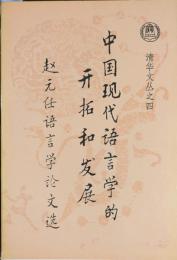 清华文丛之四
中国现代语言学的
开拓和发展
赵元任语言学论文选